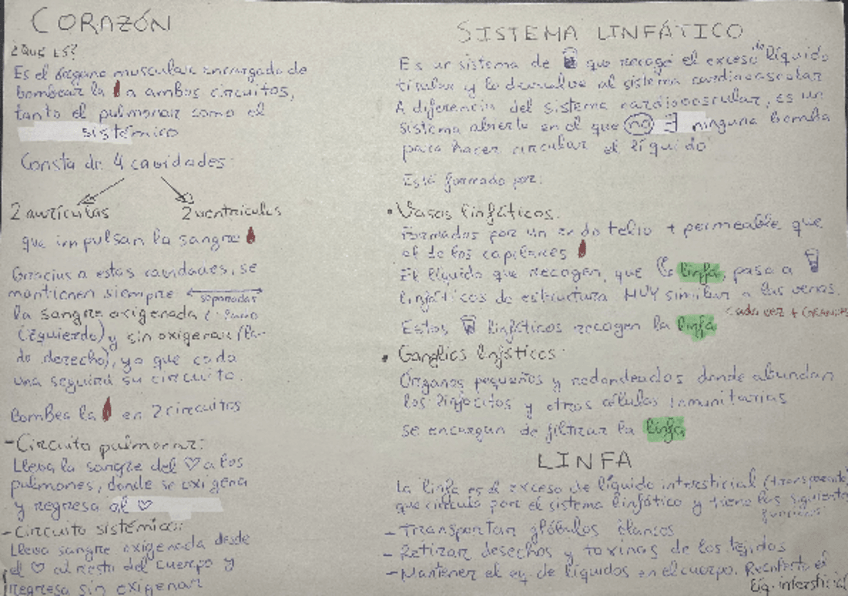 CORAZÓN
¿Qué es?
Es el órgano muscular encargado de
bombear la en ambos circuitos,
tanto el pulmonar como el
sistémico
Consta de 4 cavidades:
2 aurículas 2 ventrículos
que impulsan la sangre
Gracias a estas cavidades, se
mantienen siempre separadas
la sangre oxigenada
(izquierdo) y sin oxigenar (la-
do derecho), ya que cada
una seguirá su circuito.
Bombea la en 2 circuitos
- Circuito pulmonar:
Lleva la sangre del ♡ a los
pulmones, donde se oxigena
y regresa al ♡
- Circuito sistémico:
Lleva sangre oxigenada desde
el ♡ al resto del cuerpo y
regresa sin oxigenar
SISTEMA LINFÁTICO
Es un sistema de que recoge el exceso de líquido
tisular y lo devuelve al sistema cardiovascular
A diferencia del sistema cardiovascular, es un
sistema abierto en el que no ∃ ninguna bomba
para hacer circular el líquido
Está formado por:
• Vasos linfáticos:
Formados por un endotelio + permeable que
el de los capilares
El líquido que recogen, que linfa, pasa a
linfáticos de estructura MUY similar a las venas.
cada vez + GRANDES
Estos linfáticos recogen la linfa
• Ganglios linfáticos:
Órganos pequeños y redondeados donde abundan
los linfocitos y otras células inmunitarias
se encargan de filtrar la linfa
LINFA
La linfa es el exceso de líquido intersticial (+transparente)
que circula por el sistema linfático y tiene las siguientes
funciones:
- Transportar glóbulos blancos
- Retirar desechos y toxinas de los tejidos
- Mantener el eq. de líquidos en el cuerpo. el
líq. intersticial